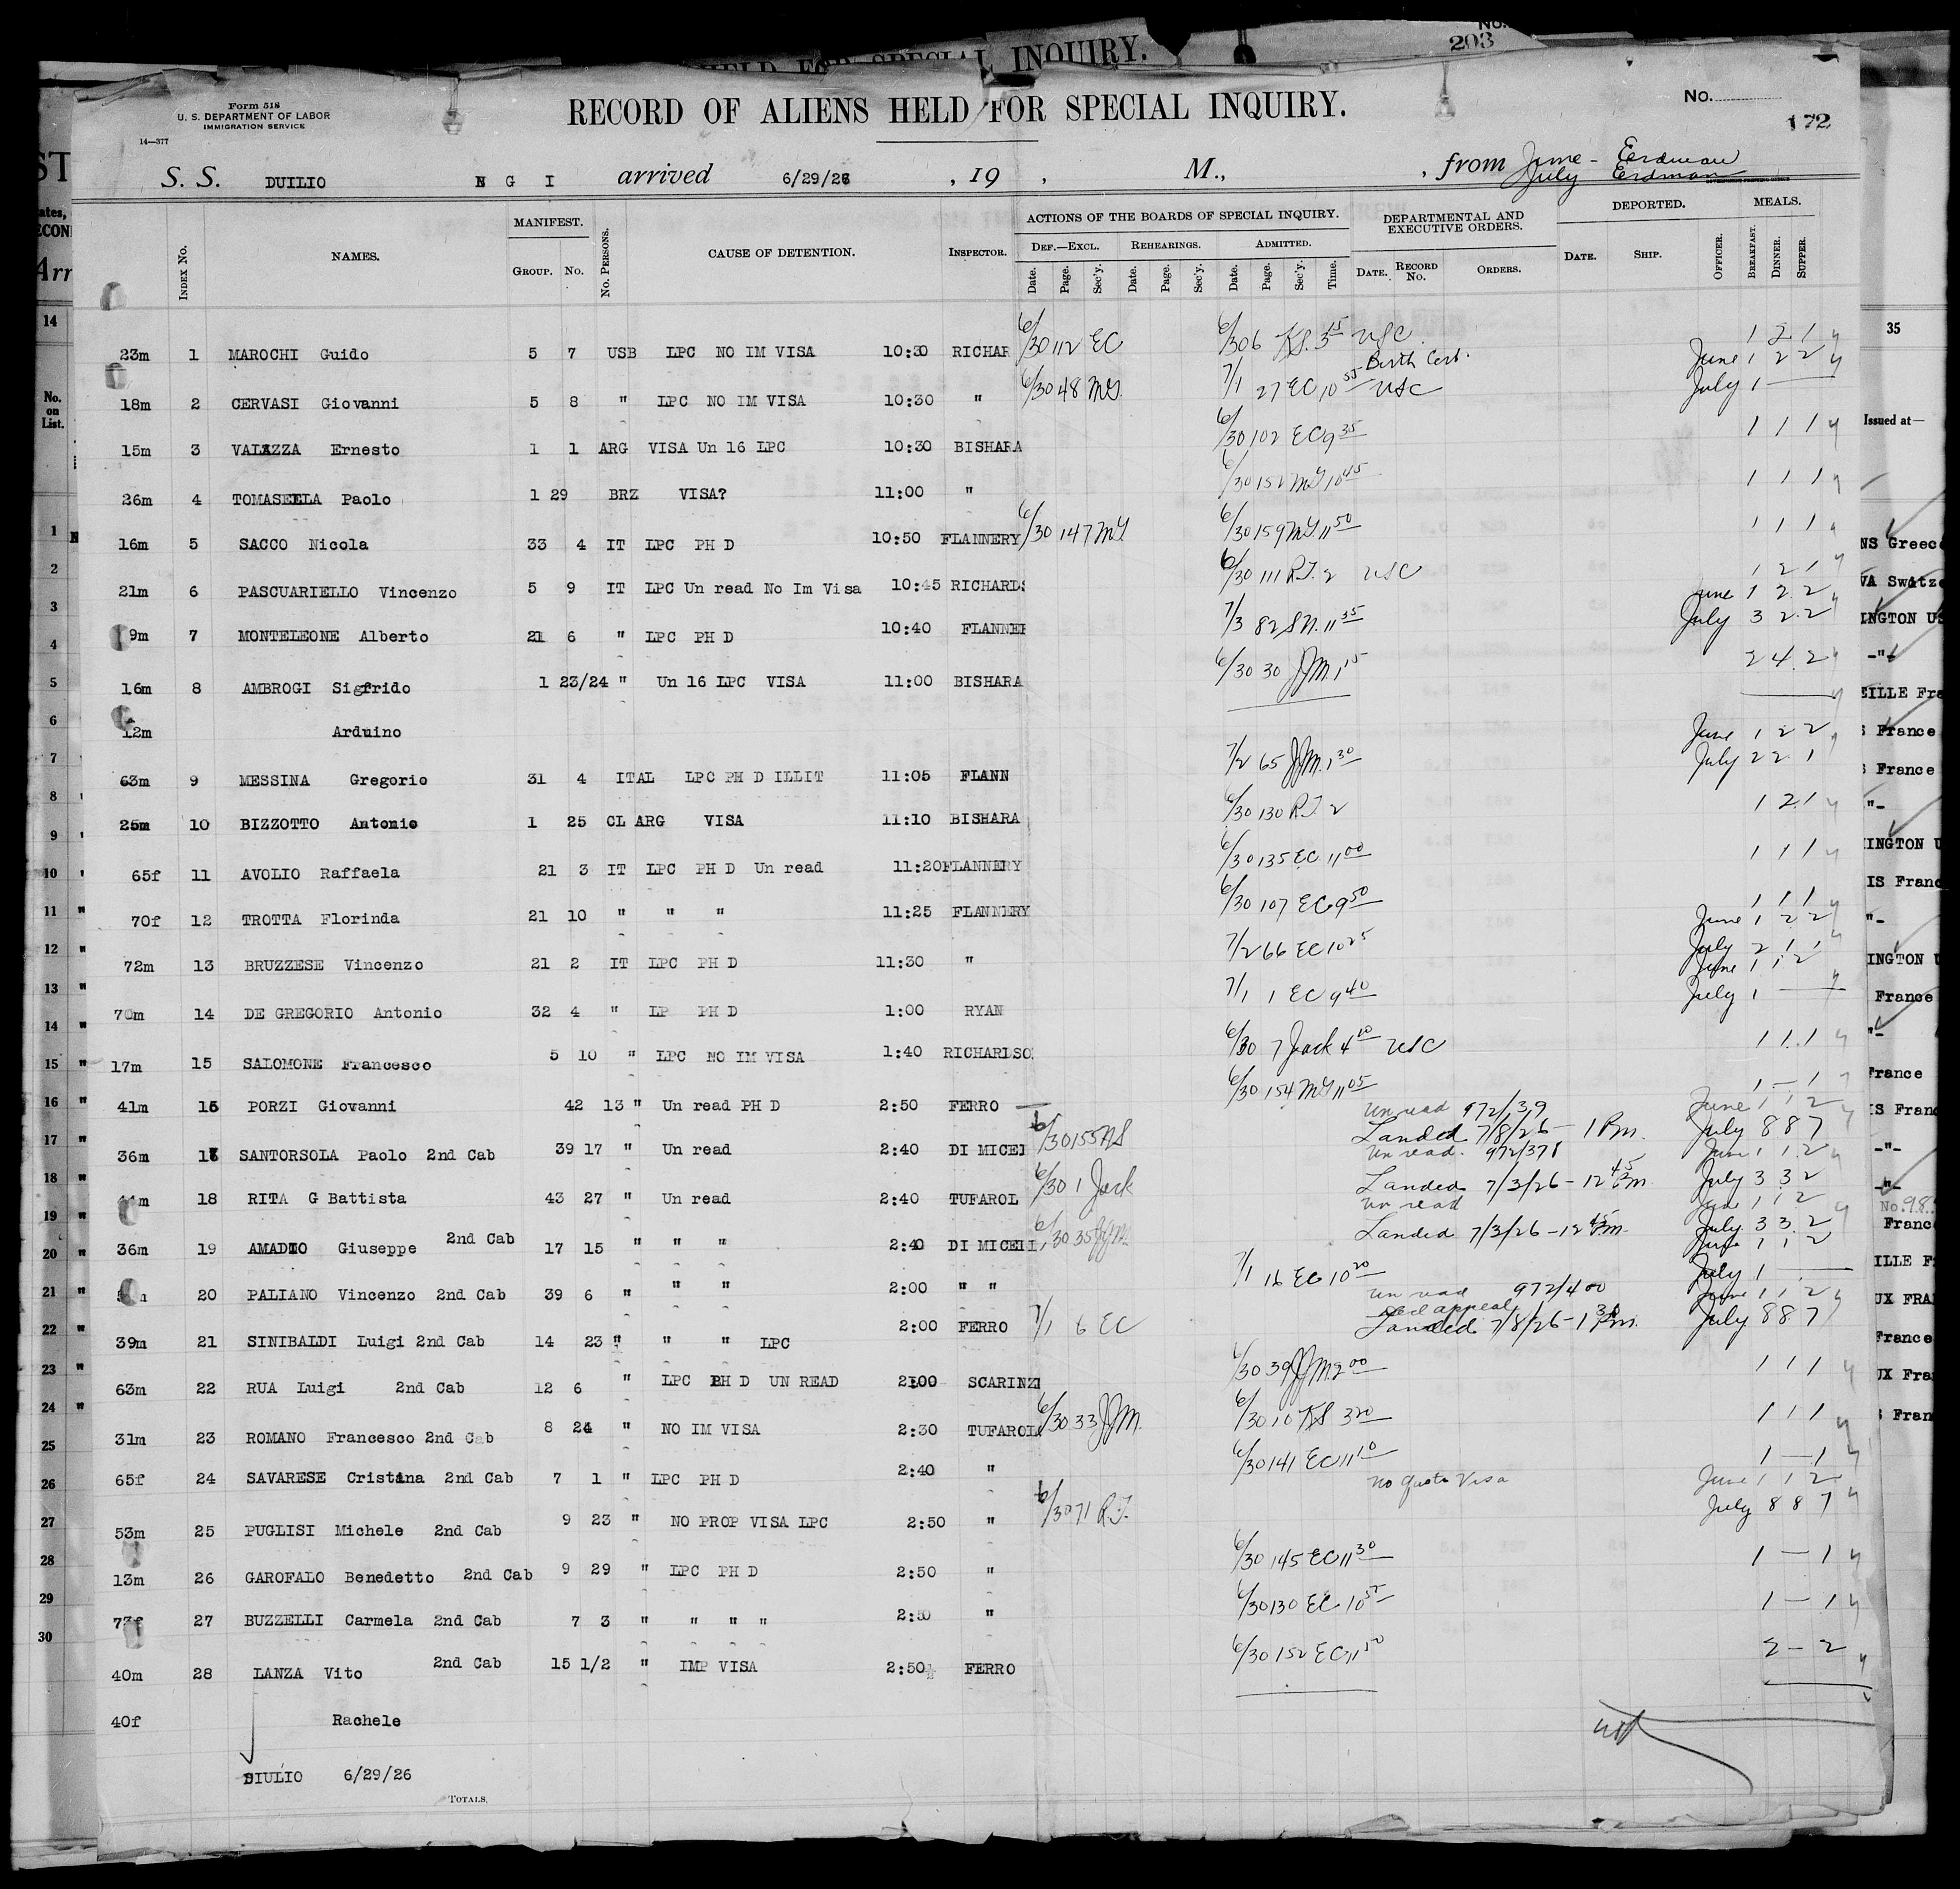 HELD FOR SPECIAL INQUIRY.
No.
203
Form 518
U. S. DEPARTMENT OF LABOR
IMMIGRATION SERVICE
14—377
RECORD OF ALIENS HELD FOR SPECIAL INQUIRY.
No.
172
S. S. DUILIO N G I arrived 6/29/26 , 19 , M., , from June - Eerdman
July Erdman
INDEX No. NAMES. MANIFEST. GROUP. No. No. PERSONS. CAUSE OF DETENTION. INSPECTOR. ACTIONS OF THE BOARDS OF SPECIAL INQUIRY. DEPARTMENTAL AND EXECUTIVE ORDERS. DEPORTED. MEALS.
DEF.—EXCL. REHEARINGS. ADMITTED.
Date. Page. Sec'y. Date. Page. Sec'y. Date. Page. Sec'y. Time. DATE. RECORD No. ORDERS. DATE. SHIP. OFFICER. BREAKFAST. DINNER. SUPPER.
23m 1 MAROCHI Guido 5 7 USB LPC NO IM VISA 10:30 RICHAR 6/30 112 EC 6/30 6 KS. 3 15 USC 1 2 1
Birth Cert. June 1 2 2
18m 2 CERVASI Giovanni 5 8 " LPC NO IM VISA 10:30 " 6/30 48 MG. 7/1 27 EC 10 55 USC July 1 —
15m 3 VALAZZA Ernesto 1 1 ARG VISA Un 16 LPC 10:30 BISHARA 6/30 102 EC 9 35 1 1 1
26m 4 TOMASELLA Paolo 1 29 BRZ VISA? 11:00 " 6/30 152 MG 10 45 1 1 1
16m 5 SACCO Nicola 33 4 IT LPC PH D 10:50 FLANNERY 6/30 147 MG 6/30 159 MG. 11 50 1 1 1
21m 6 PASCUARIELLO Vincenzo 5 9 IT LPC Un read No Im Visa 10:45 RICHARDS 6/30 111 R.J. 2 USC 1 2 1
June 1 2 2
9m 7 MONTELEONE Alberto 21 6 " LPC PH D 10:40 FLANNER 7/3 82 SN. 11 35 July 3 2 2
16m 8 AMBROGI Sigfrido 1 23/24 " Un 16 LPC VISA 11:00 BISHARA 6/30 30 JJM. 1 15 2 4 2
12m Arduino
June 1 2 2
63m 9 MESSINA Gregorio 31 4 ITAL LPC PH D ILLIT 11:05 FLANN 7/2 65 JJM. 1 30 July 2 2 1
25m 10 BIZZOTTO Antonio 1 25 CL ARG VISA 11:10 BISHARA 6/30 130 R.J. 2 1 2 1
65f 11 AVOLIO Raffaela 21 3 IT LPC PH D Un read 11:20 FLANNERY 6/30 135 EC 11 00 1 1 1
70f 12 TROTTA Florinda 21 10 " " " 11:25 FLANNERY 6/30 107 EC 9 50 1 1 1
June 1 2 2
72m 13 BRUZZESE Vincenzo 21 2 IT LPC PH D 11:30 " 7/2 66 EC 10 25 July 2 1 1
June 1 1 2
70m 14 DE GREGORIO Antonio 32 4 " LP PH D 1:00 RYAN 7/1 1 EC 9 40 July 1 —
17m 15 SALOMONE Francesco 5 10 " LPC NO IM VISA 1:40 RICHARDSO 6/30 7 Jack 4 10 USC 1 1 1
41m 16 PORZI Giovanni 42 13 " Un read PH D 2:50 FERRO 6/30 154 MG 11 05 1 — 1
Un read 972/39 June 1 1 2
36m 17 SANTORSOLA Paolo 2nd Cab 39 17 " Un read 2:40 DI MICEI 6/30 155 Landed 7/8/26 - 1 Pm. July 8 8 7
Un read. 972/371 June 1 1 2
m 18 RITA G Battista 43 27 " Un read 2:40 TUFAROL 6/30 1 Jack Landed 7/3/26 - 12 45 Pm July 3 3 2
Un read 1 1 2
36m 19 AMADIO Giuseppe 2nd Cab 17 15 " " " 2:40 DI MICELI 6/30 35 JJM Landed 7/3/26 - 12 45 Pm. July 3 3 2
June 1 1 2
20 PALIANO Vincenzo 2nd Cab 39 6 " " " 2:00 " " 7/1 16 EC 10 20 July 1 —
Un read 972/400 June 1 1 2
appeal
39m 21 SINIBALDI Luigi 2nd Cab 14 23 " " " LPC 2:00 FERRO 7/1 6 EC Landed 7/8/26 - 1 30 Pm. July 8 8 7
63m 22 RUA Luigi 2nd Cab 12 6 " LPC PH D UN READ 2:00 SCARINZI 6/30 39 JJM. 2 00 1 1 1
31m 23 ROMANO Francesco 2nd Cab 8 24 " NO IM VISA 2:30 TUFAROL 6/30 33 JJM. 6/30 10 KS 3 20 1 1 1
65f 24 SAVARESE Cristina 2nd Cab 7 1 " LPC PH D 2:40 " 6/30 141 EC 11 10 1 — 1
No quota Visa June 1 1 2
53m 25 PUGLISI Michele 2nd Cab 9 23 " NO PROP VISA LPC 2:50 " 6/30 71 R.J. July 8 8 7
13m 26 GAROFALO Benedetto 2nd Cab 9 29 " LPC PH D 2:50 " 6/30 145 EC 11 30 1 — 1
77f 27 BUZZELLI Carmela 2nd Cab 7 3 " " " " 2:50 " 6/30 130 EC 10 1 — 1
40m 28 LANZA Vito 2nd Cab 15 1/2 " IMP VISA 2:50 FERRO 6/30 152 EC 11 50 2 — 2
40f Rachele
DIULIO 6/29/26
TOTALS.